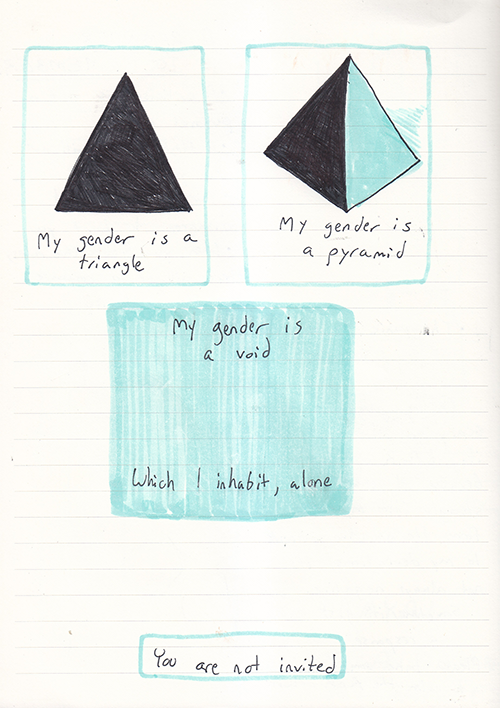 My gender is a
triangle
My gender is
a pyramid
My gender is
a void
Which I inhabit, alone
You are not invited